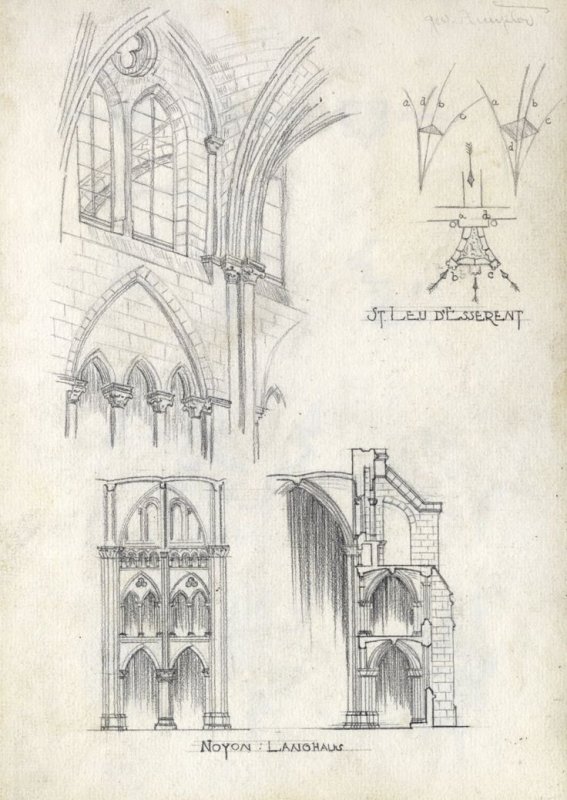 a d b c
a b c
d
a d
b c
ST. LEU D'ESSERENT
NOYON : LANGHAUS